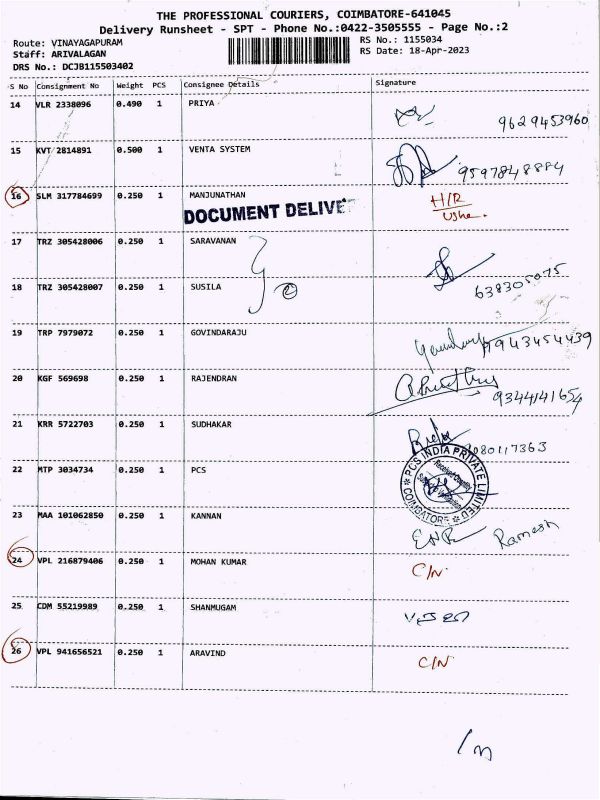 THE PROFESSIONAL COURIERS, COIMBATORE-641045
Delivery Runsheet - SPT - Phone No.:0422-3505555 - Page No.:2
Route: VINAYAGAPURAM RS No.: 1155034
Staff: ARIVALAGAN RS Date: 18-Apr-2023
DRS No.: DCJB115503402
S No Consignment No Weight PCS Consignee Details Signature
14 VLR 2338096 0.490 1 PRIYA
9629453960
15 KVT 2814891 0.500 1 VENTA SYSTEM
9597848884
16 SLM 317784699 0.250 1 MANJUNATHAN H/R
DOCUMENT DELIVE Usha.
17 TRZ 305428006 0.250 1 SARAVANAN
18 TRZ 305428007 0.250 1 SUSILA 2
19 TRP 7979072 0.250 1 GOVINDARAJU
9943454439
20 KGF 569698 0.250 1 RAJENDRAN
9344141654
21 KRR 5722703 0.250 1 SUDHAKAR
9080117363
22 MTP 3034734 0.250 1 PCS PCS INDIA PRIVATE LIMITED COIMBATORE
23 MAA 101062850 0.250 1 KANNAN
Ramesh
24 VPL 216879406 0.250 1 MOHAN KUMAR C/N
25 CDM 55219989 0.250 1 SHANMUGAM
26 VPL 941656521 0.250 1 ARAVIND C/N